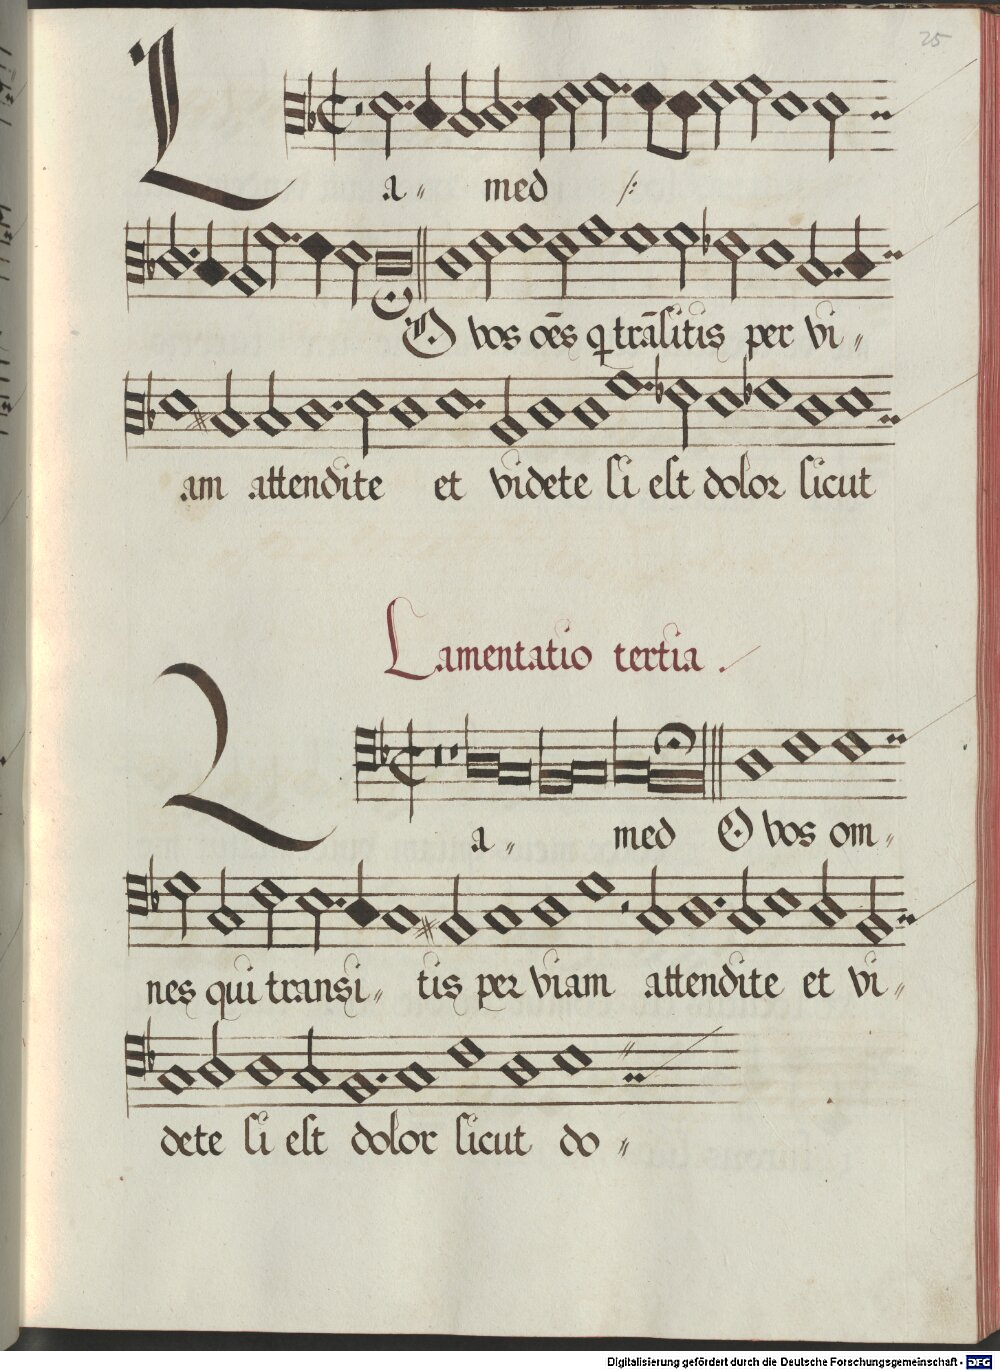 25
La〃 med /:
O vos oēs q trāsitis per vi〃
am attendite et videte si est dolor sicut
Lamentatio tertia .
La〃 med O vos om〃
nes qui transi〃 tis per viam attendite et vi〃
dete si est dolor sicut do〃
Digitalisierung gefördert durch die Deutsche Forschungsgemeinschaft - DFG